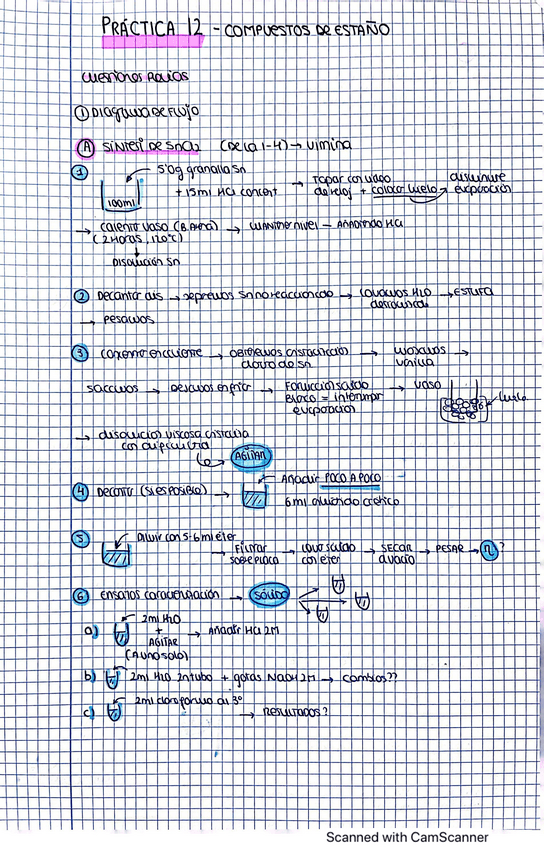 PRÁCTICA 12 - COMPUESTOS DE ESTAÑO
CUESTIONES PREVIAS
① DIAGRAMA DE FLUJO
Ⓐ SÍNTESI DE SnCl₂ (De la 1-4) → vitrina
① 5'0g granalla Sn
+ 15ml HCl concent → Tapar con vidrio de reloj + colocar hielo → disminuye evaporación
100ml
→ calentar vaso (B. Arena) → mantener nivel - Añadiendo HCl
(2 HORAS, 120ºC)
Disolución Sn
② Decantar dis → separemos Sn no reaccionado → lavamos H2O destilada → ESTUFA
→ PESAMOS
③ → obtenemos cristalización cloruro de Sn →
sacamos → Dejamos enfriar → Formación sólido Blanco = interrumpir evaporación → vaso hielo
→ disolución viscosa cristalina
AGITAR
④ Decantar (SI ES POSIBLE) → Añadir POCO A POCO
6ml anhídrido acético
⑤ Diluir con 5-6ml éter
→ Filtrar sobre placa → lavar sólido con éter → SECAR a vacío → PESAR → η?
⑥ ensayos caracterización → SÓLIDO
a) 2ml H2O
+
AGITAR → Añadir HCl 2M
(A uno solo)
b) 2ml H2O 2n tubo + gotas NaOH 2M → cambios??
c) 2ml cloroformo al 3º → RESULTADOS?
Scanned with CamScanner